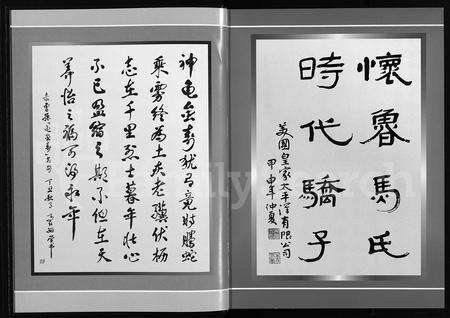 懷魯馬氏
時代驕子
美國皇家太平洋有限公司
甲申年仲夏
神龜雖壽猶有竟時騰蛇
乘霧終為土灰老驥伏櫪
志在千里烈士暮年壯心
不已盈縮之期不但在天
養怡之福可得永年
familysearch